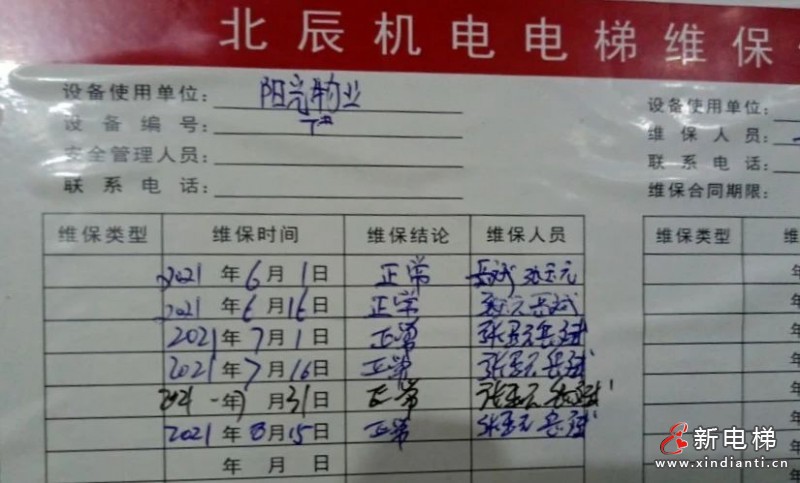 北辰机电电梯维保
设备使用单位：阳光物业
设备使用单位：
设备编号：
维保人员：
安全管理人员：
联系电话：
联系电话：
维保合同期限：
维保类型 维保时间 维保结论 维保人员 维保类型 维
2021年6月1日 正常 岳斌 张玉元
2021年6月16日 正常 张玉元岳斌
2021年7月1日 正常 张玉元岳斌
2021年7月16日 正常 张玉元岳斌
2021年7月31日 正常 张玉元岳斌
2021年8月15日 正常 张玉元岳斌
年 月 日
新电梯
www.xindianti.com